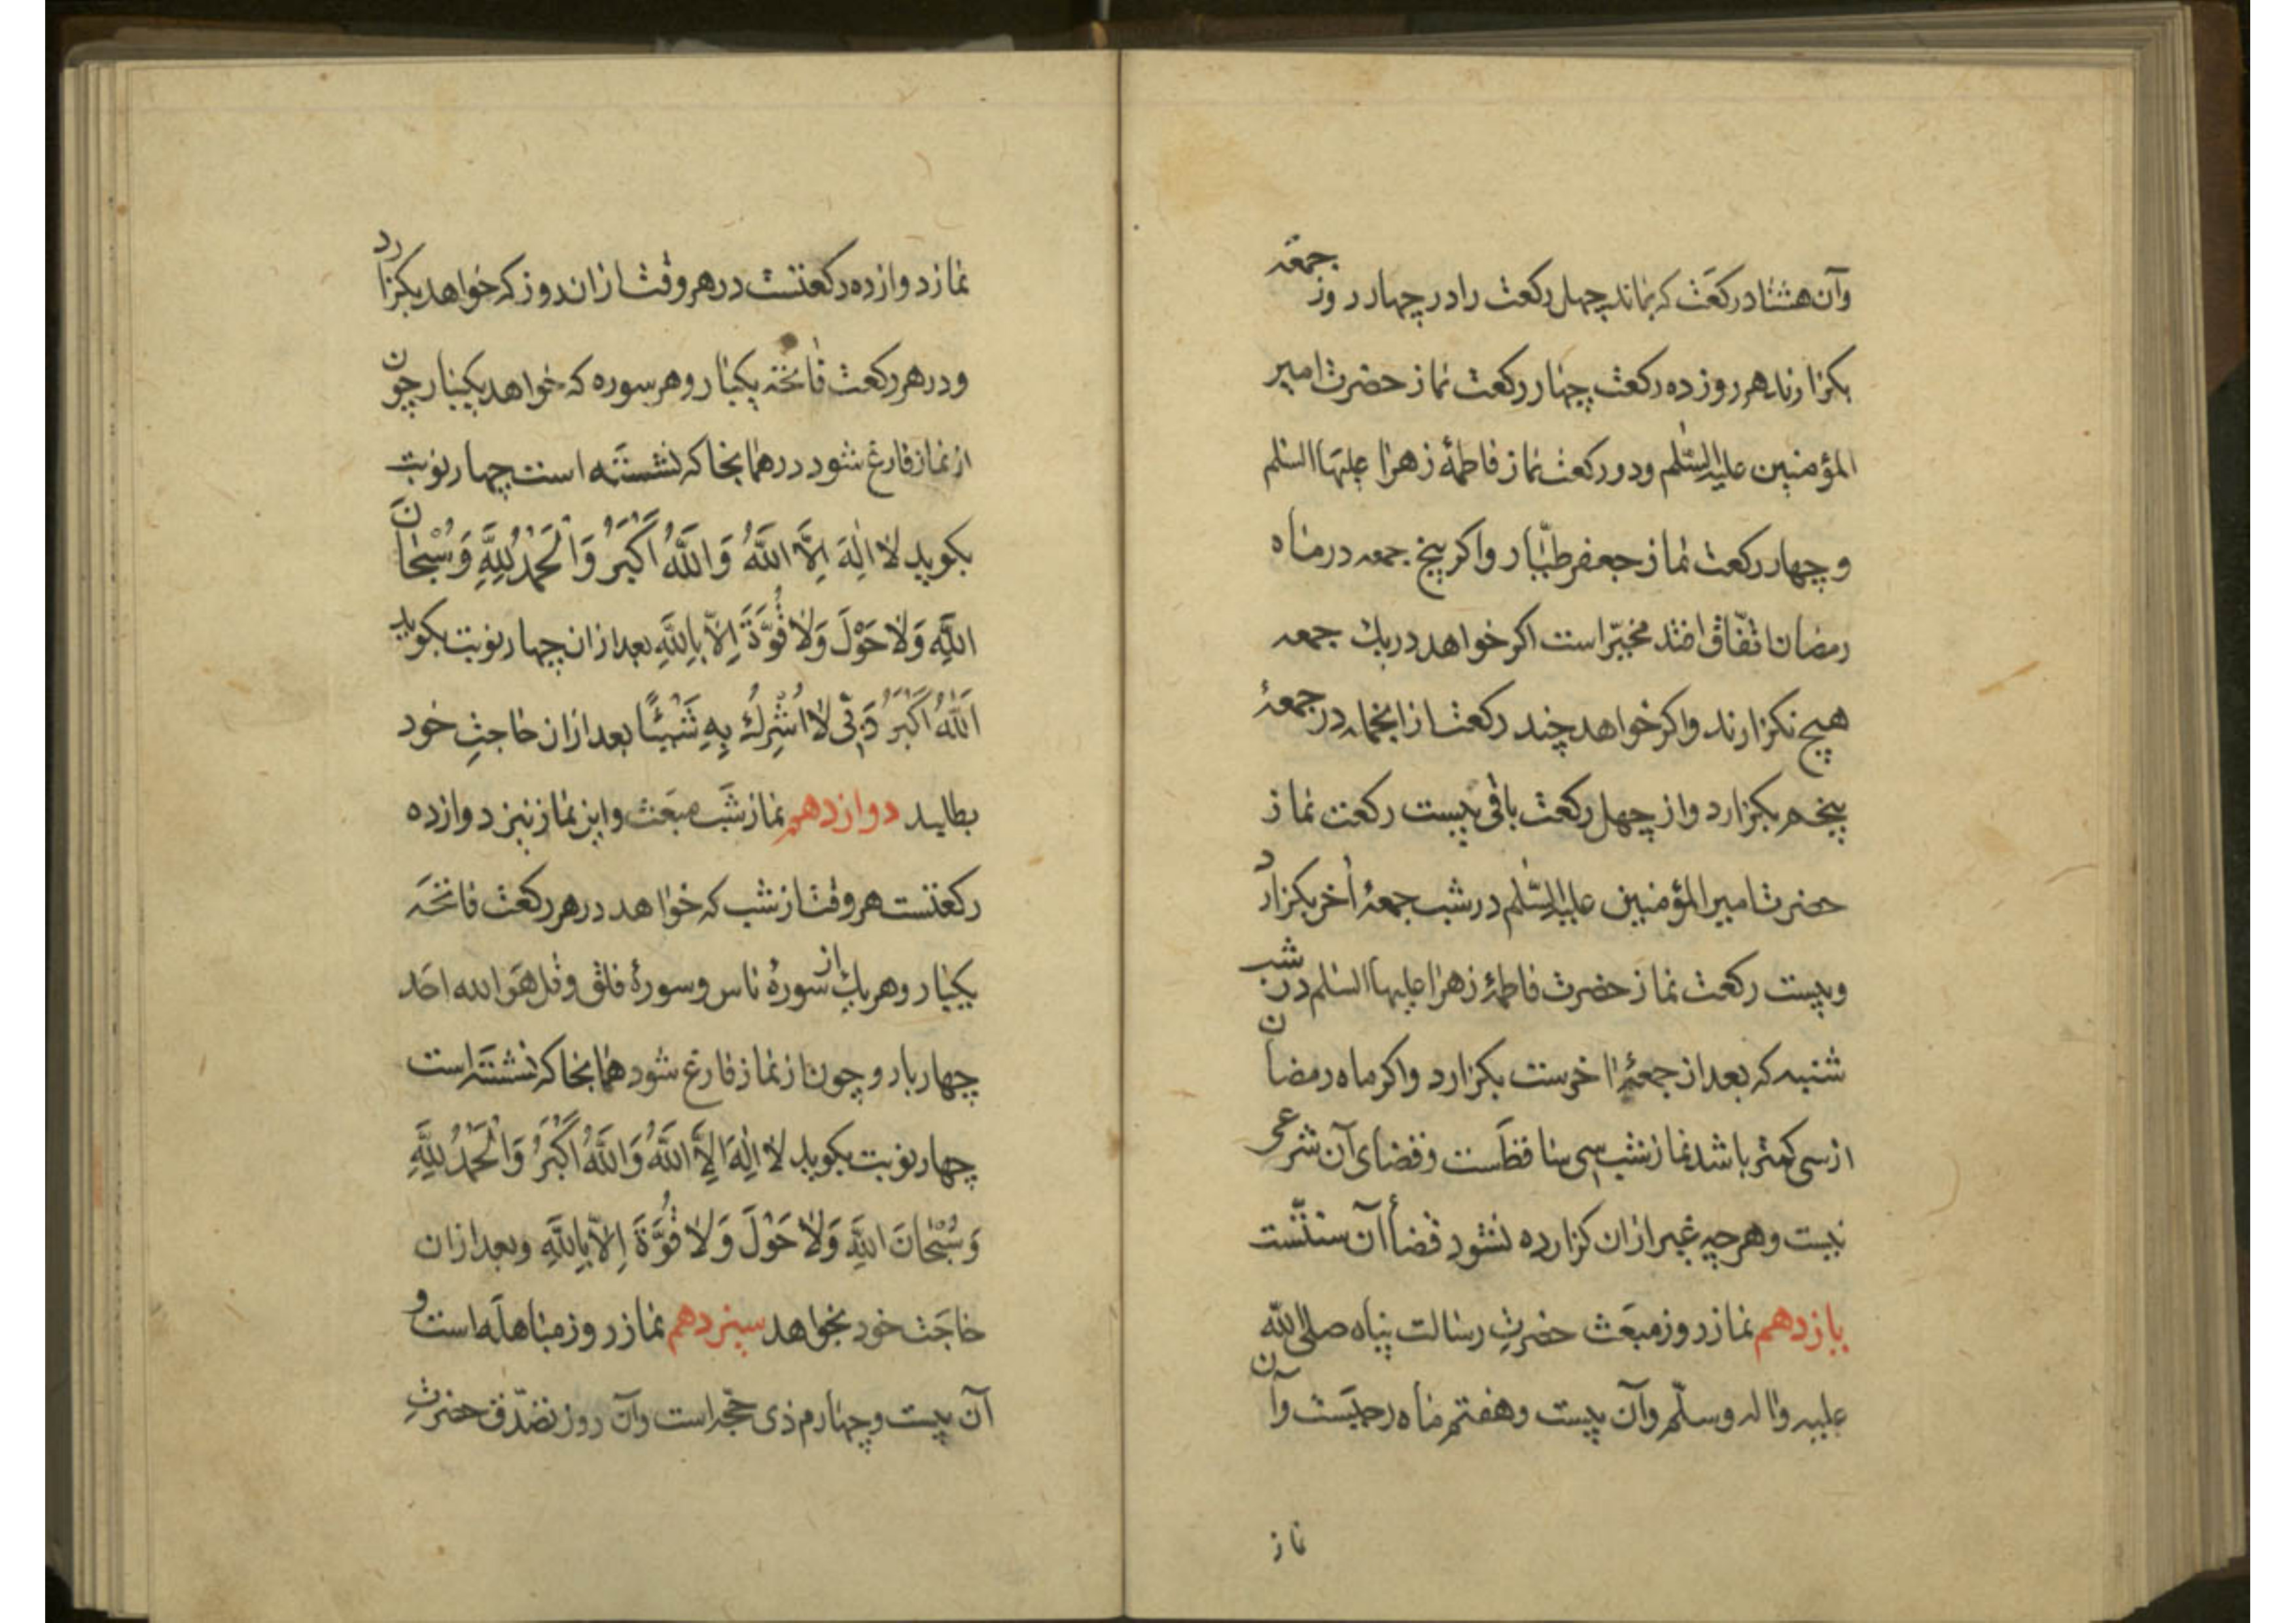 وآن هشتاد رکعت که بماند چهل رکعت را در چهار روز جمعه
بکزارند هر روز ده رکعت چهار رکعت نماز حضرت امیر
المؤمنین علیه السّلم ودو رکعت نماز فاطمهٔ زهرا علیها السلم
و چهار رکعت نماز جعفر طیّار واکر پنج جمعه در ماه
رمضان اتّفاق افتد مخیّر است اکر خواهد در یک جمعه
هیچ نکزارند واکر خواهد چند رکعت از انجمله در جمعهٔ
پنجم بکزارد واز چهل رکعت باقی بیست رکعت نماز
حضرت امیر المؤمنین علیه السّلم در شب جمعهٔ آخر بکزارد
وبیست رکعت نماز حضرت فاطمهٔ زهرا علیها السلم در شب
شنبه که بعد از جمعهٔ اخرست بکزارد واکر ماه رمضان
از سی کمتر باشد نماز شب سی ساقطست وقضای آن شرعی
نیست وهرچه غیر ازان کزارده نشود قضاء آن سنّتست
یازدهم نماز روز مبعث حضرت رسالت پناه صلی الله
علیه واله وسلّم وآن بیست وهفتم ماه رجبست وآن
نماز
نماز دوازده رکعتست در هر وقت از ان روز که خواهد بکزارد
ودر هر رکعت فاتحه یکبار وهر سوره که خواهد یکبار چون
از نماز فارغ شود در همانجا که نشسته است چهار نوبت
بکوید لا اِلٰهَ اِلَّا اللّٰهُ وَاللّٰهُ اَکْبَرُ وَالْحَمْدُ لِلّٰهِ وَسُبْحٰانَ
اللّٰهِ وَلا حَوْلَ وَلا قُوَّةَ اِلاّ بِاللّٰهِ بعد ازان چهار نوبت بکوید
اَللّٰهُ اَکْبَرُ رَبّی لا اُشْرِكُ بِهِ شَیْئًا بعد ازان حاجت خود
بطلبد دوازدهم نماز شب مبعث واین نماز نیز دوازده
رکعتست هر وقت از شب که خواهد در هر رکعت فاتحه
یکبار وهر یک از سورهٔ ناس وسورهٔ فلق وقل هو الله احد
چهار بار وچون از نماز فارغ شود همانجا که نشسته است
چهار نوبت بکوید لا اِلٰهَ اِلَّا اللّٰهُ وَاللّٰهُ اَکْبَرُ وَالْحَمْدُ لِلّٰهِ
وَسُبْحٰانَ اللّٰهِ وَلا حَوْلَ وَلا قُوَّةَ اِلاّ بِاللّٰهِ وبعد ازان
حاجت خود بخواهد سیزدهم نماز روز مباهله است و
آن بیست وچهارم ذی حجّه است وآن روز تصدّق حضرت